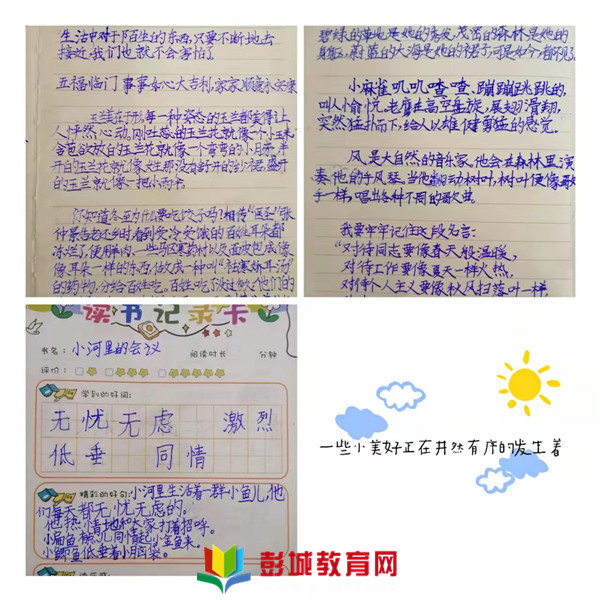 生活中对于陌生的东西,只要不断地去
接近,我们也就不会害怕了。
五福临门 事事好心大吉利,家家顺意永安康
玉兰美在于形,每一种姿态的玉兰都美得让
人怦然心动,刚吐蕊的玉兰花就像一个小玉米,
含苞欲放的玉兰花就像一个弯弯的小月牙,半
开的玉兰花就像女生那没有舒开的纱裙,盛开
的玉兰花就像一把小雨伞。
你知道冬至为什么要吃饺子吗?相传“医圣”张
仲景告老还乡时看到受冷受饿的百姓耳朵都
冻烂了,便用羊肉、一些驱寒药材以及面皮包成像
像耳朵一样的东西,做成一种叫“祛寒娇耳汤”
的药物,分给百姓吃。百姓吃了
碧绿的草地是她的秀发,茂密的森林是她的
身躯,蔚蓝的大海是她的裙子,可是如今
小麻雀叽叽喳喳、蹦蹦跳跳的,
叫人愉悦。老鹰在高空盘旋,展翅滑翔,
突然猛扑而下,给人以雄健勇猛的感觉。
风,是大自然的音乐家,他会在森林里演
奏他的手风琴。当他翻动树叶,树叶便像歌
手一样,唱出各种不同的歌曲。
我要牢牢记住这段名言:
“对待同志要像春天般温暖,
对待工作要像夏天一样火热,
对待个人主义要像秋风扫落叶一样,
读书记录卡
书名:小河里的会议 阅读时长 分钟
评价:
学到的好词:
无忧无虑 激烈
低垂 同情
精彩的好句:小河里生活着一群小鱼儿,他
们每天都无忧无虑的。
他热情地和大家打着招呼。
小扁鱼 同情起小金鱼来。
小鲫鱼低垂着小脑袋。
一些小美好正在井然有序的发生着
彭城教育网